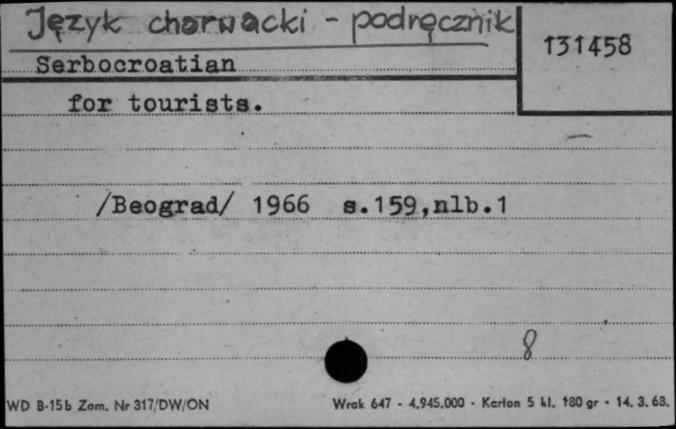 Język chorwacki - podręcznik
131458
Serbocroatian
for tourists.
/Beograd/ 1966 s.159,nlb.1
8
WD B-15b Zam. Nr 317/DW/ON
Wrak 647 - 4.945.000 - Karton 5 kl. 180 gr - 14. 3. 63.